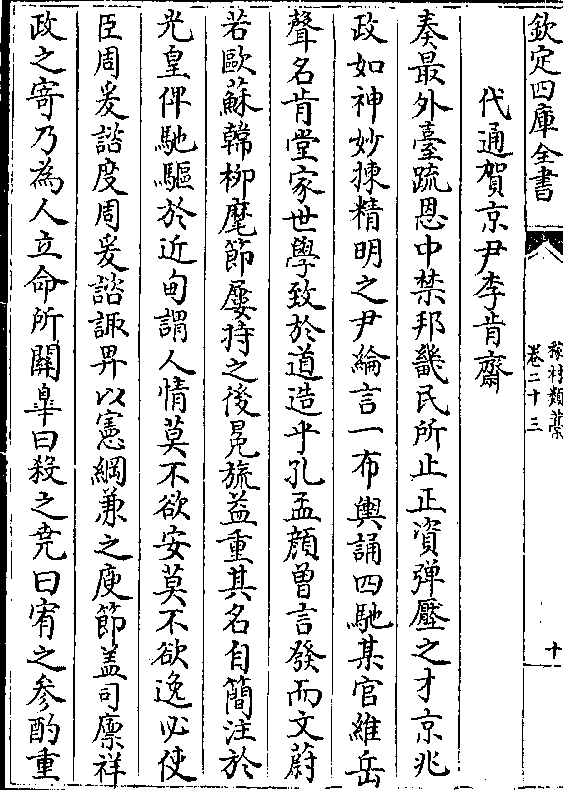 欽定四庫全書
梅村類藁
卷二十三
十
代通賀京尹李肯齋
奏最外臺疏恩中禁邦畿民所止正資彈壓之才京兆
政如神妙揀精明之尹綸言一布輿誦四馳某官維岳
聲名肯堂家世學致於道造乎孔孟顔曾言發而文蔚
若歐蘇韓栁麾節屢持之後冕旒益重其名自簡注於
光皇俾馳驅於近甸謂人情莫不欲安莫不欲逸必使
臣周爰諮度周爰諮諏畀以憲綱兼之庾節葢司廪祥
政之寄乃為人立命所關臯曰殺之堯曰宥之參酌重